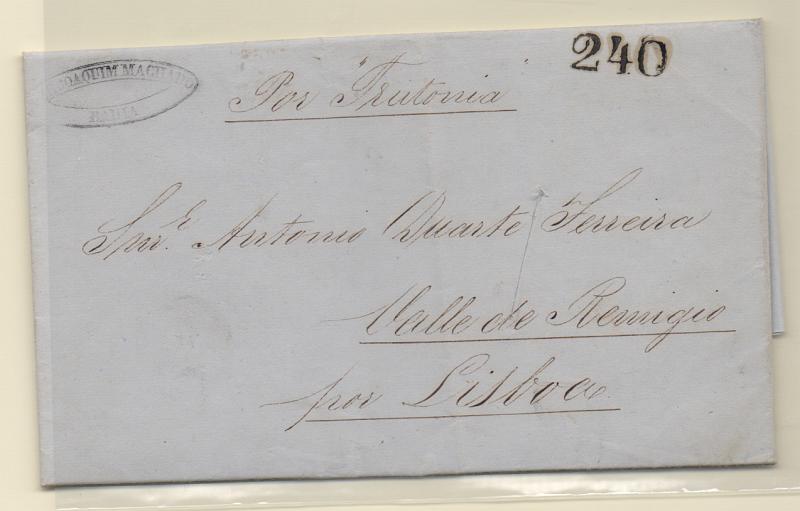 JOAQUIM MACHADO
BAHIA
240
Por "Teutonia"
Snr. Antonio Duarte Ferreira
Valle de Remigio
por Lisboa